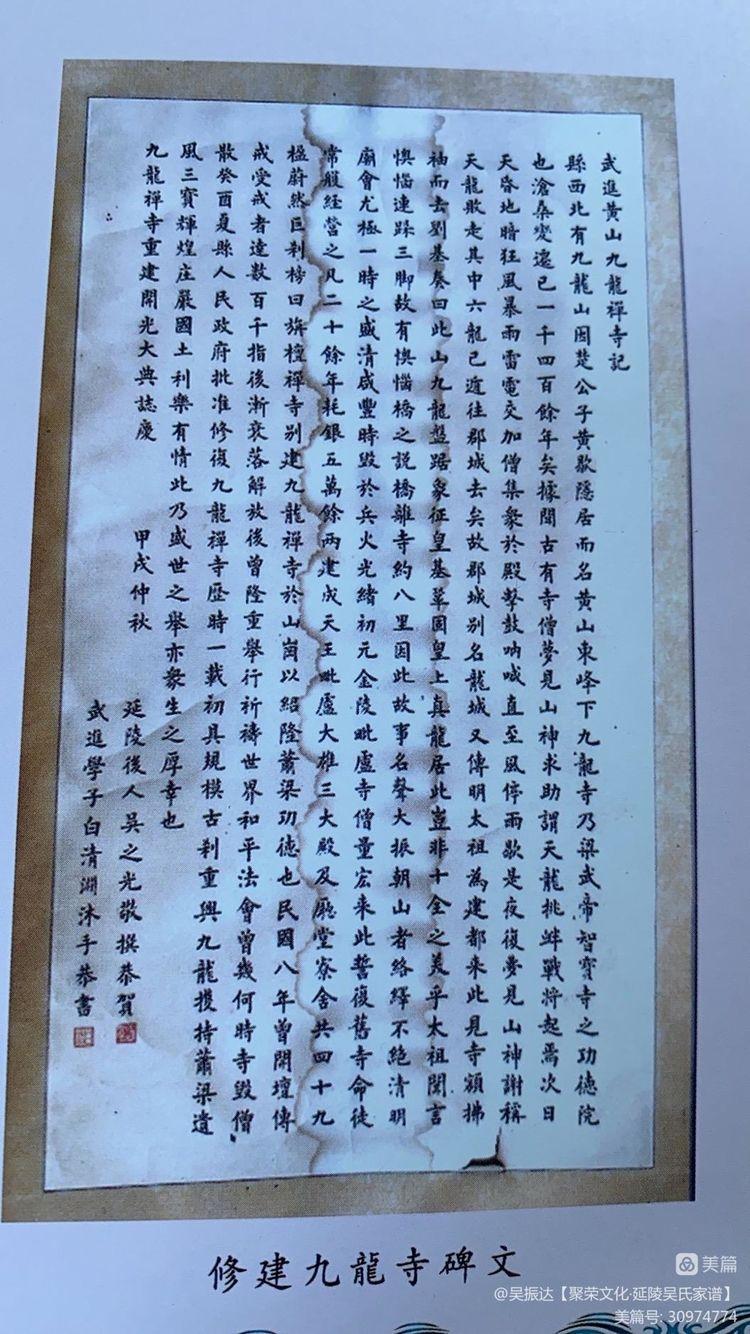 武進黄山九龍禪寺記
縣西北有九龍山因楚公子黄歇隱居而名黄山東峰下九龍寺乃梁武帝智寶寺之功德院
也滄桑變遷已一千四百餘年矣據聞古有寺僧夢見山神求助謂天龍挑衅戰将起焉次日
天昏地暗狂風暴雨雷電交加僧集衆於殿擊鼓呐喊直至風停雨歇是夜復夢見山神謝稱
天龍敗走其中六龍已遁往郡城去矣故郡城别名龍城又傳明太祖為建都来此見寺額拂
袖而去劉基奏曰此山九龍盤踞象征皇基鞏固皇上真龍居此豈非十全之美乎太祖聞言
懊惱連跺三脚故有懊惱橋之説橋離寺約八里因此故事名聲大振朝山者絡繹不絶清明
廟會尤極一時之盛清咸豐時毁於兵火光緒初元金陵毗盧寺僧量宏来此誓復舊寺命徒
常履経營之凡二十餘年耗銀五萬餘两建成天王毗盧大雄三大殿及廳堂寮舍共四十九
楹蔚然巨刹榜曰旃檀禪寺别建九龍禪寺於山崗以紹隆蕭梁功德也民國八年曾開壇傳
戒受戒者達数百千指後漸衰落解放後曾隆重舉行祈禱世界和平法會曾幾何時寺毁僧
散癸酉夏縣人民政府批准修復九龍禪寺歷時一載初具規模古刹重興九龍護持蕭梁遺
風三寶輝煌庄嚴國土利樂有情此乃盛世之舉亦衆生之厚幸也
九龍禪寺重建開光大典誌慶
甲戌仲秋
延陵後人吴之光敬撰恭賀
武進學子白清渊沐手恭書
修建九龍寺碑文
美篇
@吴振达【聚荣文化·延陵吴氏家谱】
美篇号: 30974774